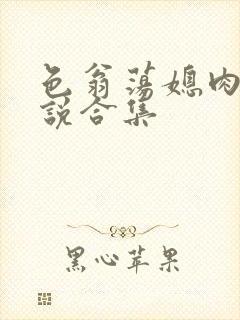 色翁荡媳肉
说合集
黑心苹果